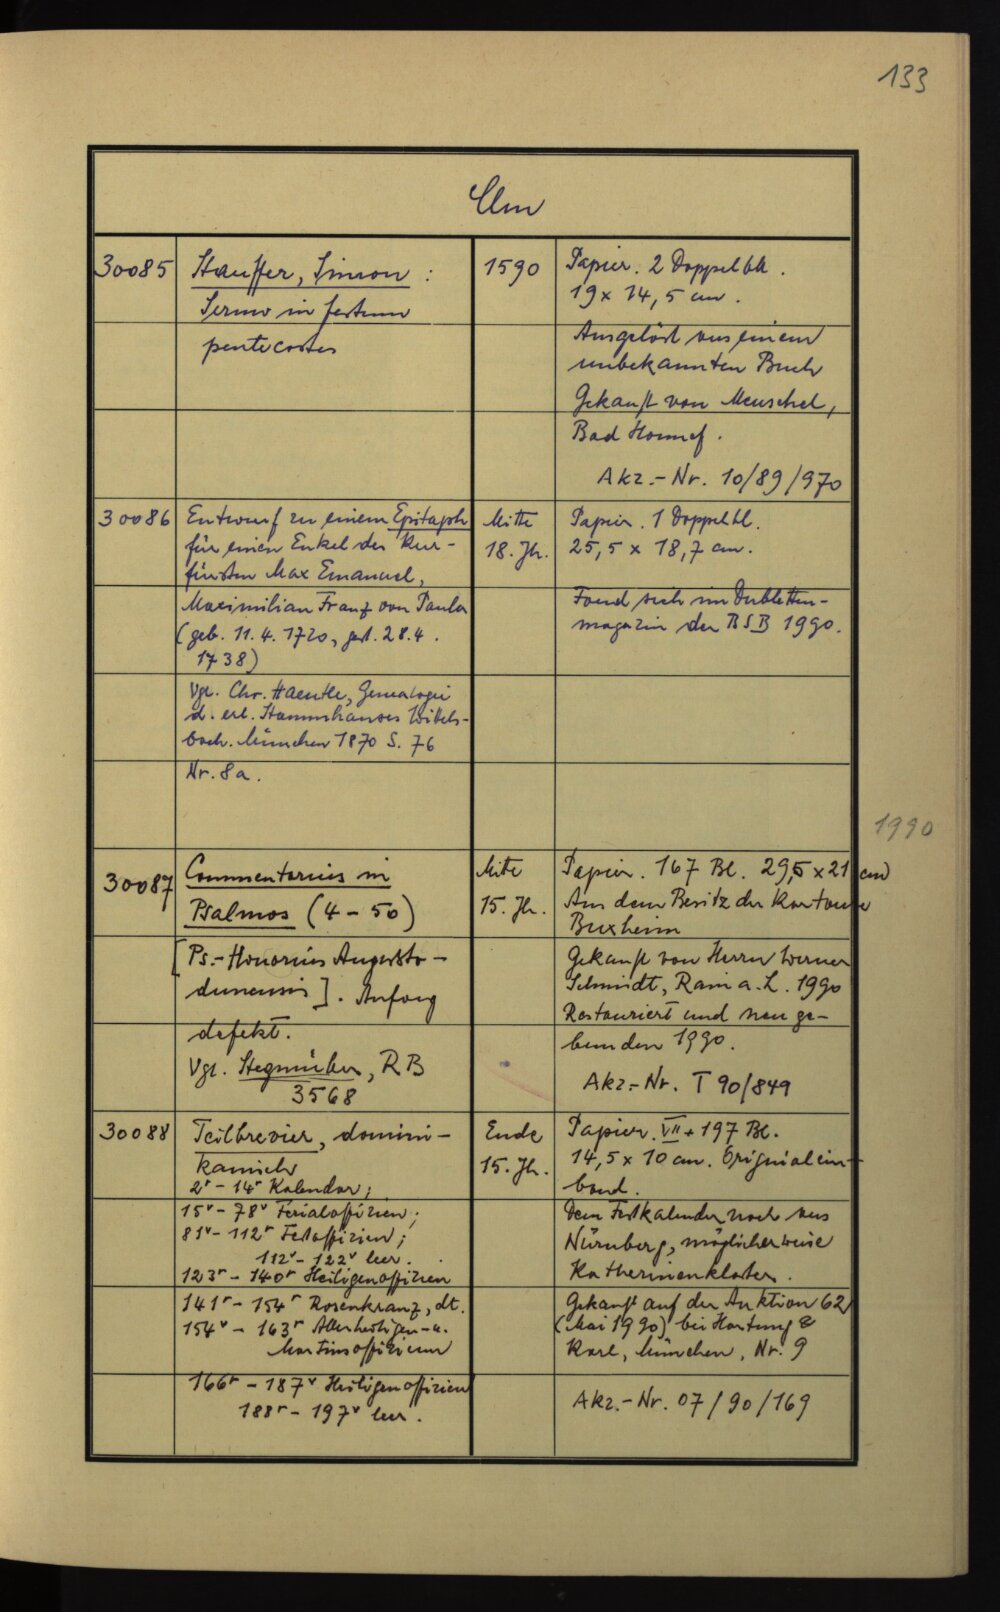 133
Clm
30085
Stauffer, Simon :
Sermo in festum
pentecostes
1590
Papier. 2 Doppelbll.
19 x 14,5 cm.
Ausgelöst aus einem
unbekannten Buch
Gekauft von Meuschel,
Bad Honnef.
Akz.-Nr. 10/89/970
30086
Entwurf zu einem Epitaph
für einen Enkel des Kur-
fürsten Max Emanuel,
Maximilian Franz von Paula
(geb. 11.4.1720, gest. 28.4.
1738)
Vgl. Chr. Haeutle, Genealogie
d. erl. Stammhauses Wittels-
bach. München 1870 S. 76
Nr. 8a.
Mitte
18. Jh.
Papier. 1 Doppelbl.
25,5 x 18,7 cm.
Fand sich im Dubletten-
magazin der BSB 1990.
1990
30087
Commentarius in
Psalmos (4-50)
[Ps.-Honorius Augusto-
dunensis]. Anfang
defekt.
Vgl. Stegmüller, RB
3568
Mitte
15. Jh.
Papier. 167 Bl. 29,5 x 21 cm
Aus dem Besitz der Kartause
Buxheim
Gekauft von Herrn Werner
Schmidt, Rain a. L. 1990
Restauriert und neu ge-
bunden 1990.
Akz.-Nr. T 90/849
30088
Teilbrevier, domini-
kanisch
2r - 14r Kalendar;
15v - 78v Ferialoffizien;
81v - 112r Festoffizien;
112v - 122v leer.
123r - 140r Heiligenoffizien
141r - 154r Rosenkranz, dt.
154v - 163r Allerheiligen- u.
Martinsoffizium
166r - 187v Heiligenoffizien
188r - 197v leer.
Ende
15. Jh.
Papier. VII + 197 Bl.
14,5 x 10 cm. Originalein-
band.
Dem Festkalender nach aus
Nürnberg, möglicherweise
Katherinenkloster.
Gekauft auf der Auktion 62
(Mai 1990) bei Hartung &
Karl, München, Nr. 9
Akz.-Nr. 07/90/169